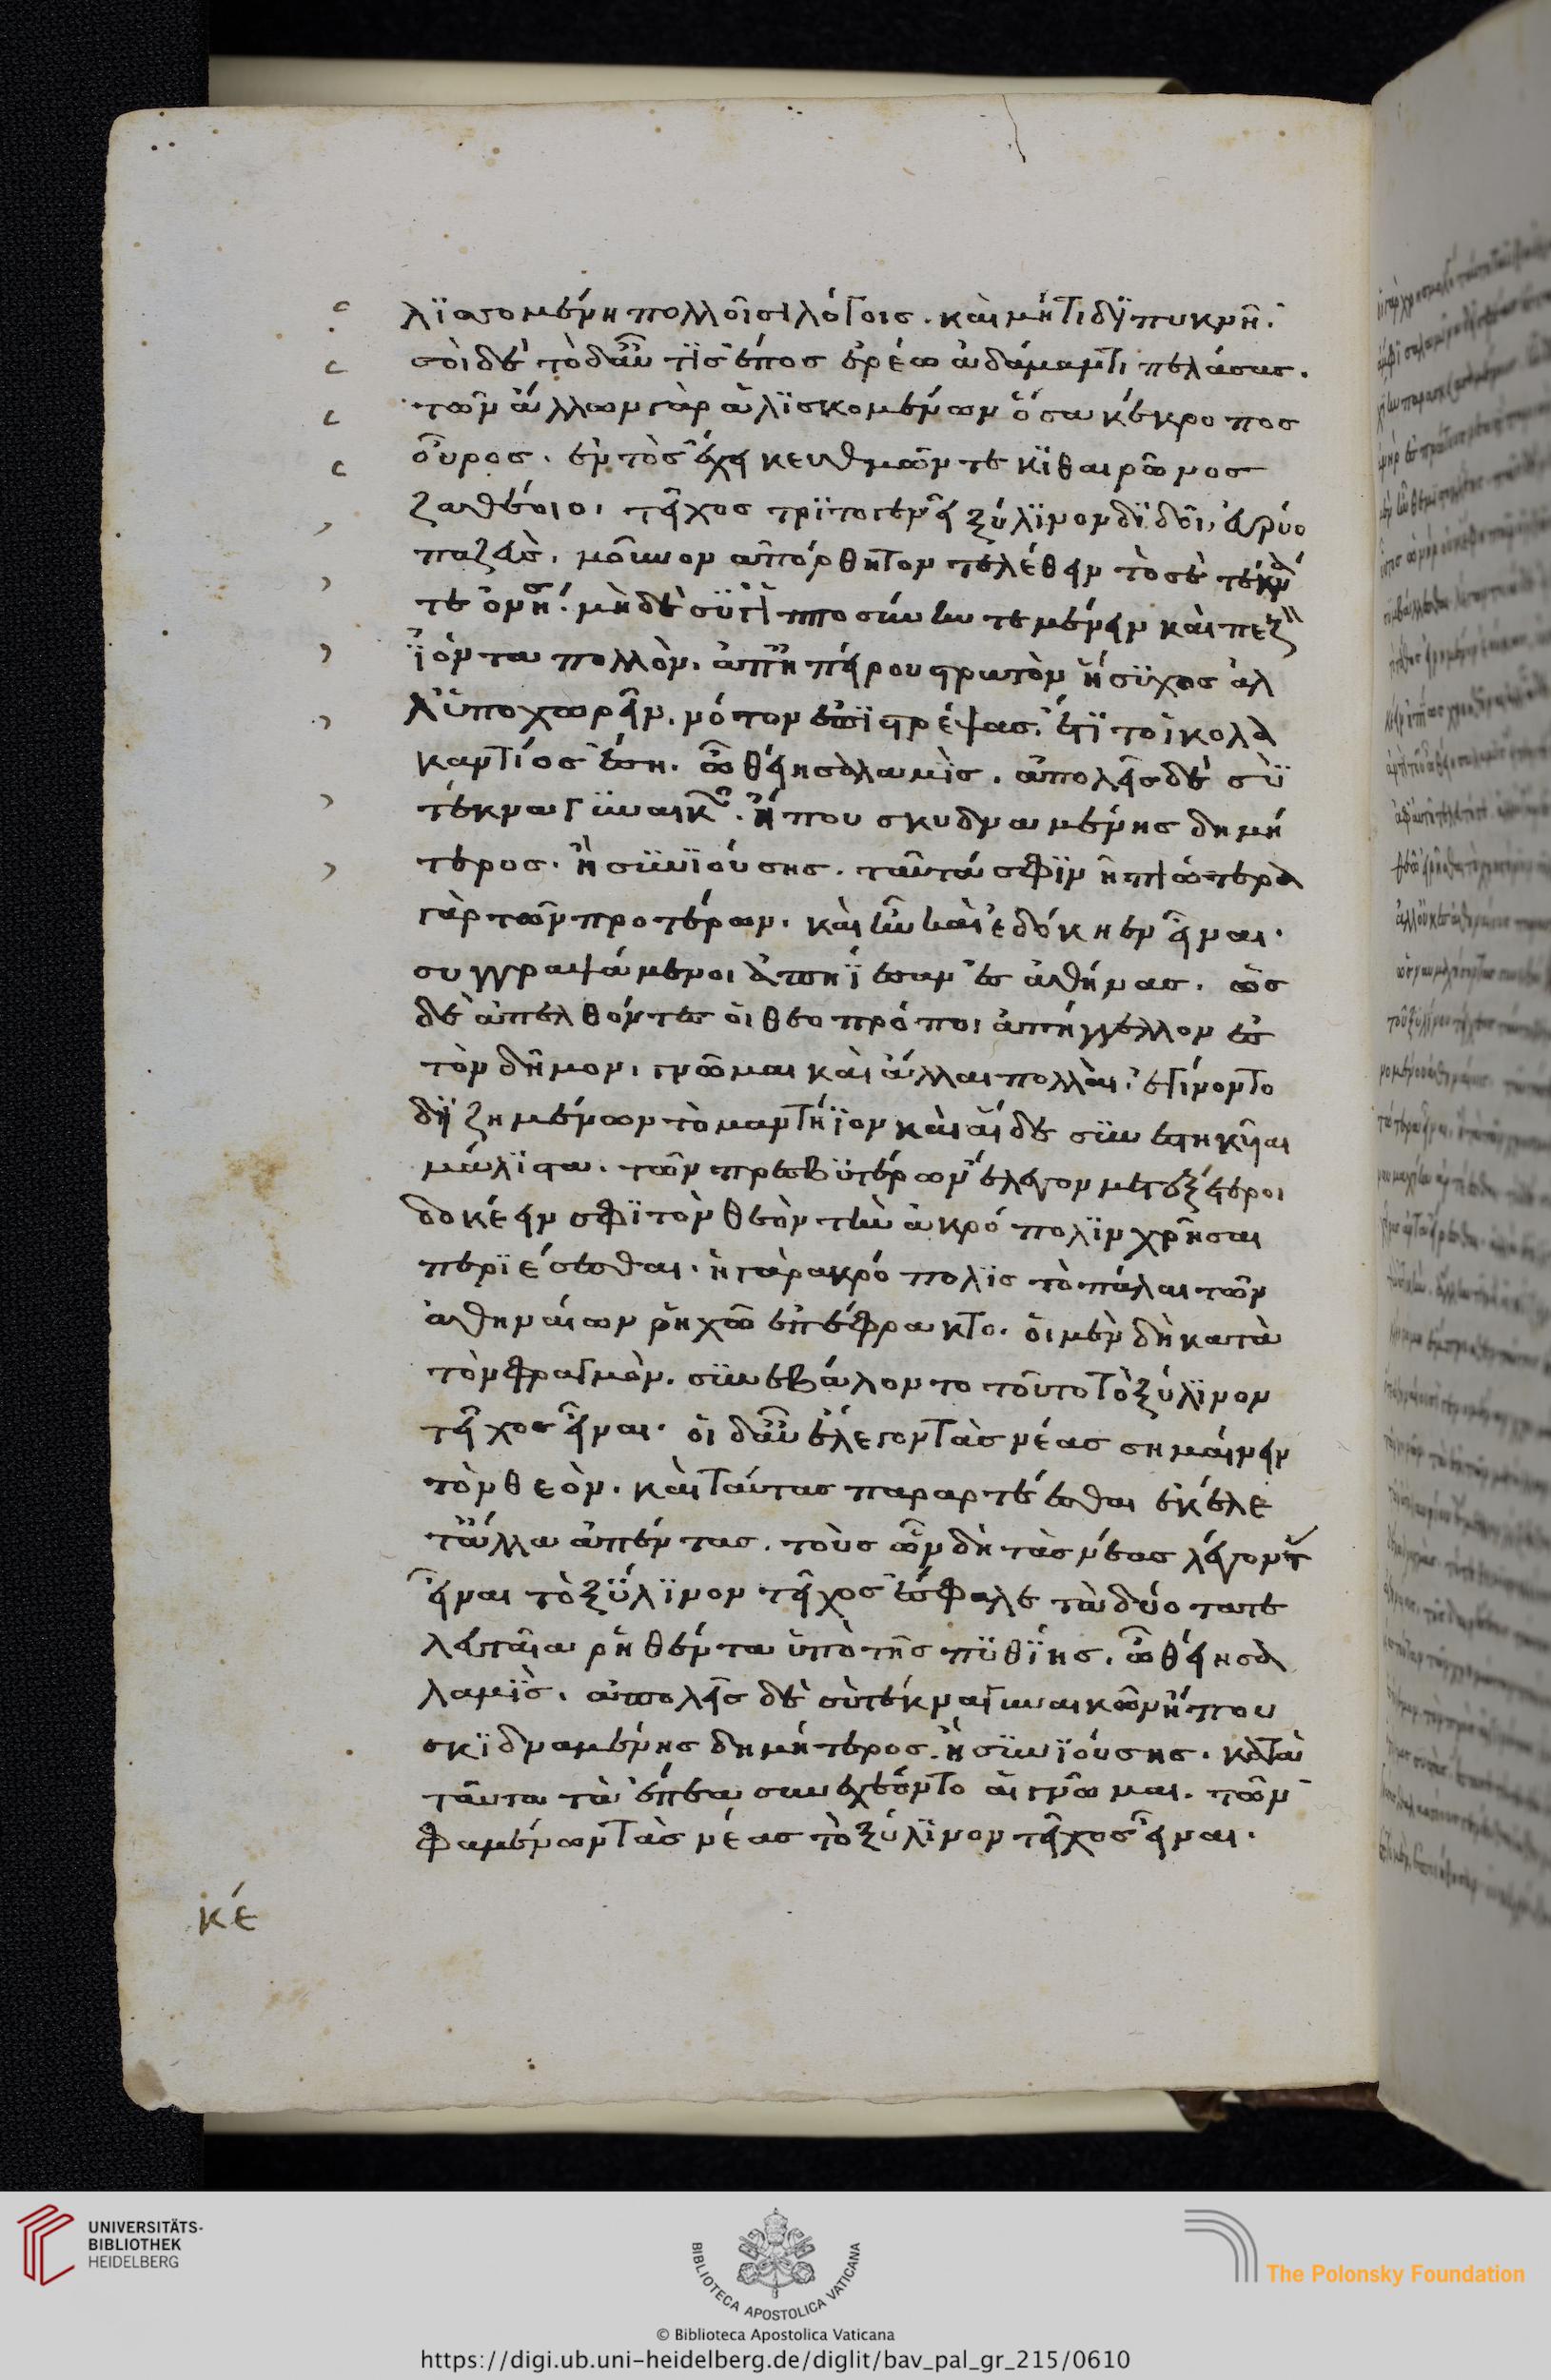 λϊσσομένη πολλοῖσι λόγοις. καὶ μήτιδϊ πυκνῆ.
σοὶ δὲ τὸ δ' αὖτϊς ἔπος ἐρέω ἀδάμαντι πελάσας.
τῶν ἄλλων γὰρ ἁλϊσκομένων ὅσα κέκροπος
οὖρος. ἐντὸς ἔχει κευθμῶν τε κϊθαιρῶνος
ζαθέοιο. τεῖχος τρϊτογενεῖ ξύλϊνον δϊδοῖ εὐρύο
πα ζεὺς. μοῦνον ἀπόρθητον τελέθειν τὸ σὲ τέκνα
τ' ὀνήσει. μηδὲ σὺ γ' ἱπποσύνην τε μένειν καὶ πεζὸν
ϊόντα πολλὸν. ἀπ' ἠπείρου στρατὸν ἥσϋχος ἀλ
λ' ὑποχωρεῖν. νότον ἐπϊστρέψας. ἔτϊ τοὶ κοτὲ
κἀντίος ἔσση. ὦ θείη σαλαμὶς. ἀπολεῖς δὲ σὺ
τέκνα γϋναικῶν. ἤ που σκυδναμένης δημή
τερος. ἢ σϋνϊούσης. ταῦτά σφϊν ἠπϊώτερα
γὰρ τῶν προτέρων. καὶ ἦν καὶ ἐδόκηεν εἶναι.
συγγραψάμενοι ἀπηϊεσαν ἐς ἀθήνας. ὡς
δὲ ἀπελθόντες οἱ θεοπρόποι ἀπήγγελλον ἐς
τὸν δῆμον. γνῶμαι καὶ ἄλλαι πολλαὶ ἐγίνοντο
δϊζημένων τὸ μαντήϊον καὶ αἵδε σϋνεστηκυῖαι
μάλϊστα. τῶν πρεσβϋτέρων ἔλεγον μετεξέτεροι
δοκέειν σφϊ τὸν θεὸν τὴν ἀκρόπολϊν χρῆσαι
περϊέσεσθαι. ἡ γὰρ ἀκρόπολϊς τὸ πάλαι τῶν
ἀθηναίων ῥηχῶ ἐπέφρακτο. οἱ μὲν δὴ κατὰ
τὸν φραγμὸν. σϋνεβάλοντο τοῦτο τὸ ξύλϊνον
τεῖχος εἶναι. οἱ δ' αὖ ἔλεγον τὰς νέας σημαίνειν
τὸν θεὸν. καὶ ταύτας παραρτέεσθαι ἐκέλε
τἄλλα ἀπέντας. τοὺς ὦν δὴ τὰς νέας λέγοντας
εἶναι τὸ ξύλϊνον τεῖχος ἔσφαλε τὰ δύο τα τε
λευταῖα ῥηθέντα ὑπὸ τῆς πϋθϊης. ὦ θείη σα
λαμῒς. ἀπολεῖς δὲ σὺ τέκνα γυναικῶν ἤ που
σκϊδναμένης δημήτερος. ἢ σϋνϊούσης. κατὰ
ταῦτα τὰ ἔπεα συνεχέοντο αἱ γνῶμαι. τῶν
φαμένων τὰς νέας τὸ ξύλϊνον τεῖχος εἶναι.
κέ
UNIVERSITÄTS-
BIBLIOTHEK
HEIDELBERG
BIBLIOTECA APOSTOLICA VATICANA
The Polonsky Foundation
© Biblioteca Apostolica Vaticana
https://digi.ub.uni-heidelberg.de/diglit/bav_pal_gr_215/0610